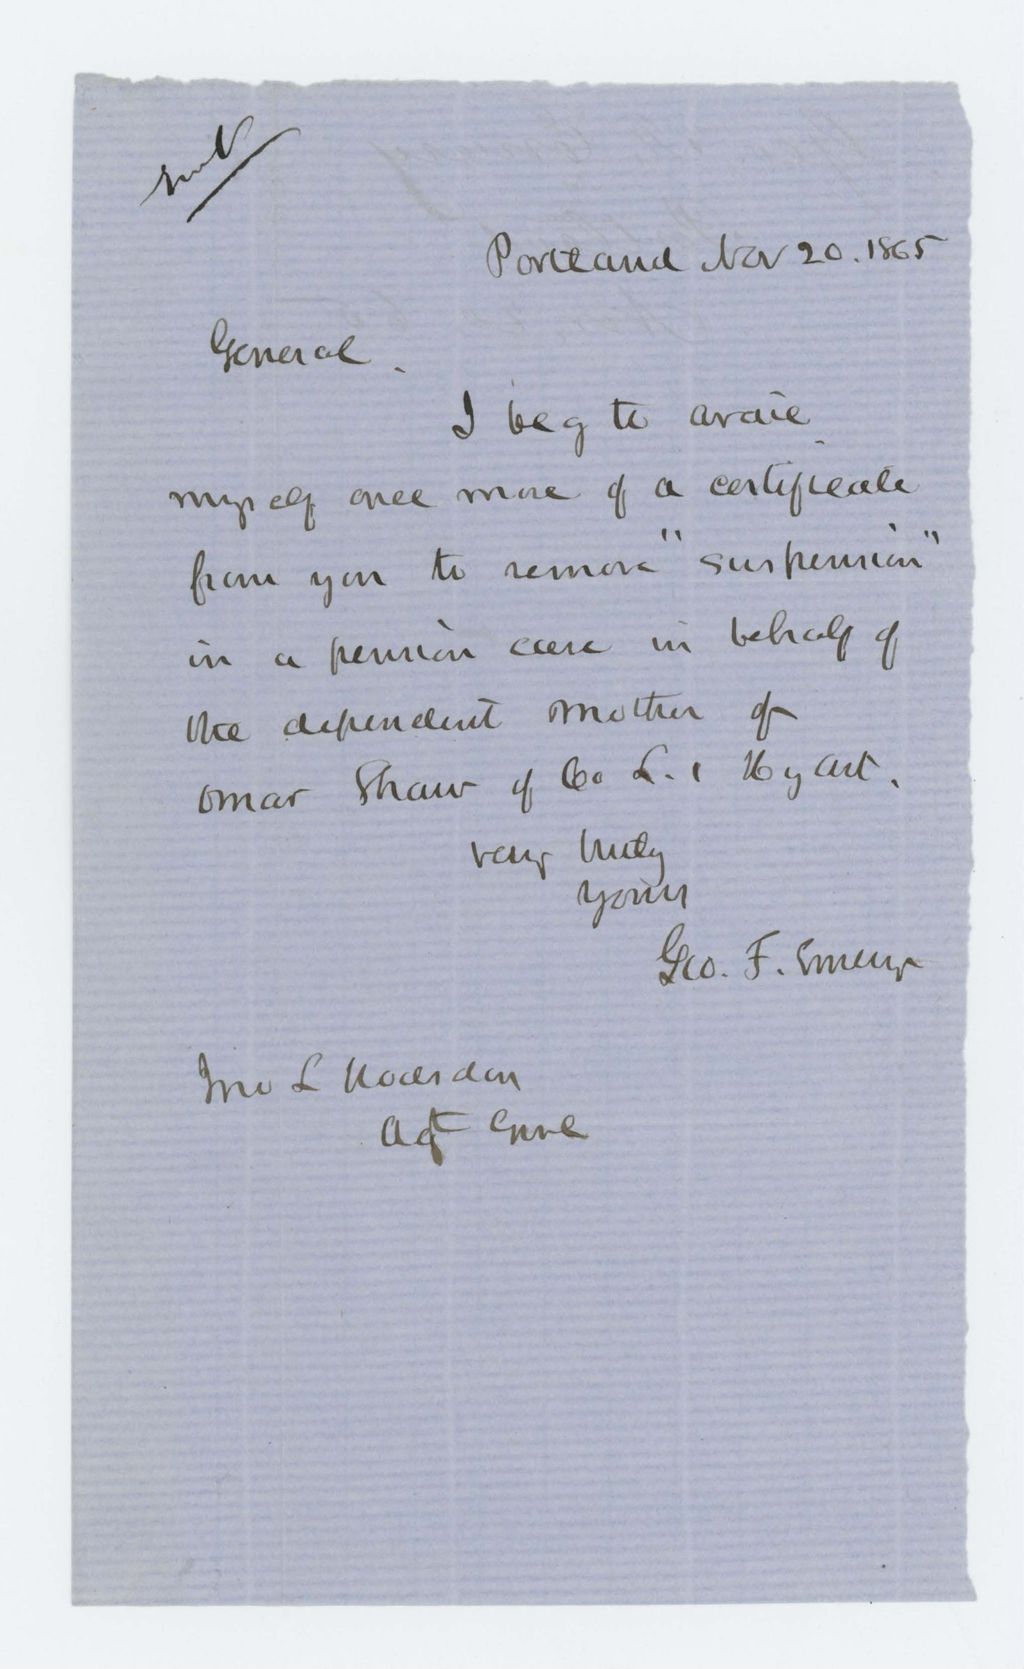 sent
Portland Nov 20. 1865
General.
I beg to avail
myself once more of a certificate
from you to remove "suspension"
in a pension case in behalf of
the dependent mother of
Omar Shaw of Co L. 1 Hy Art.
very truly
yours
Geo. F. Emery
Jno L Hodsdon
Adjt Genl